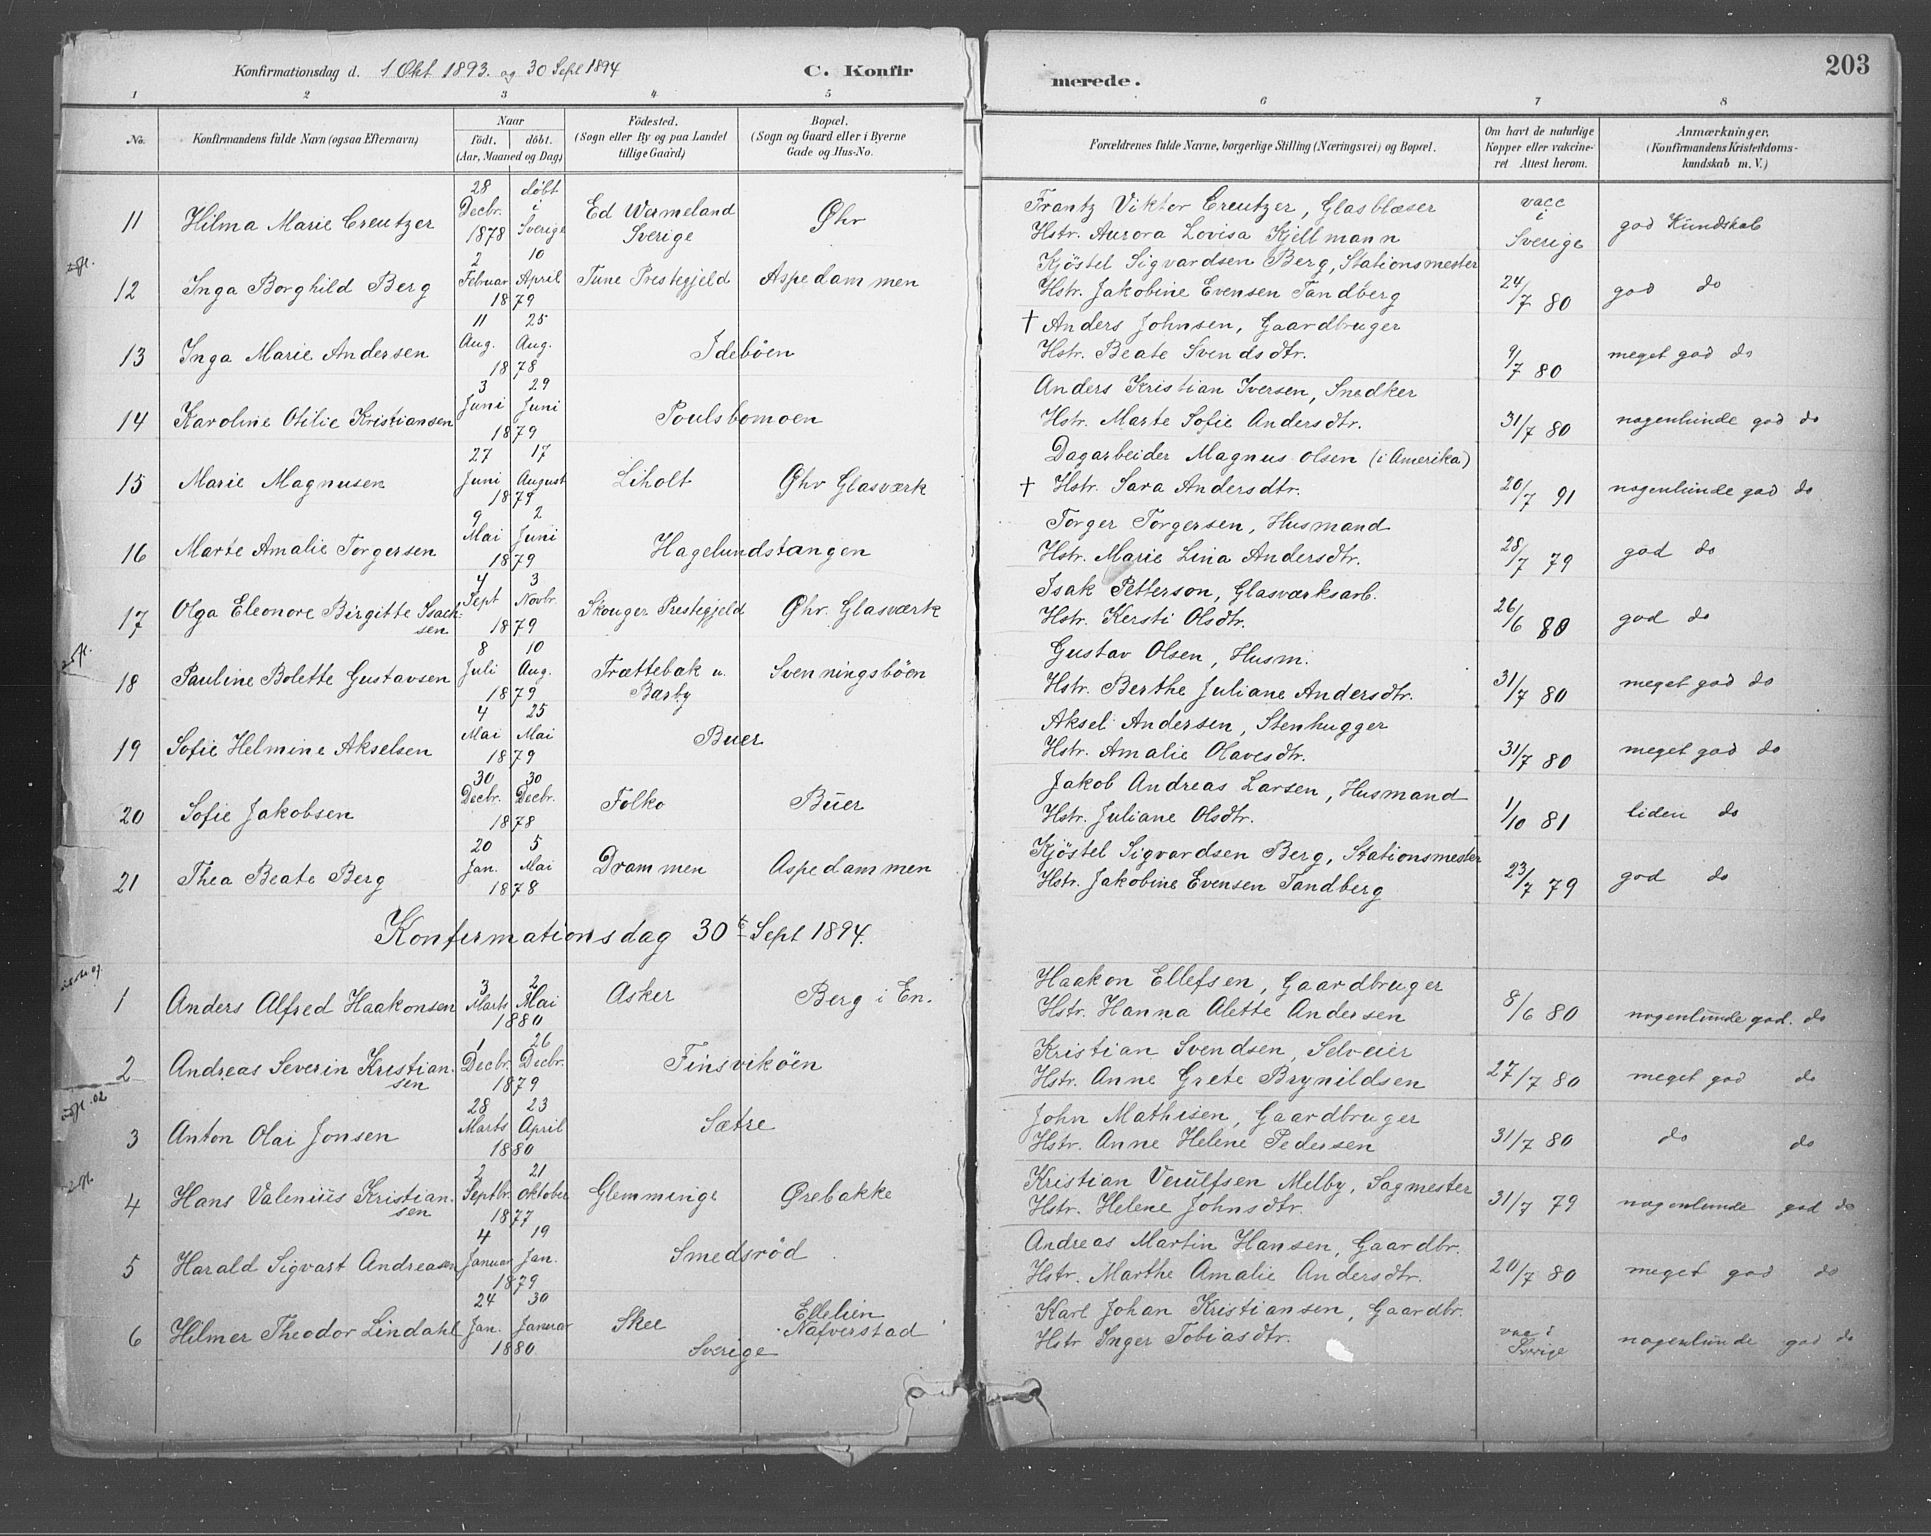 Konfirmationsdag d. 1 Okt 1893. og 30 Sept 1894 C. Konfir merede. 203
1 2 3 4 5 6 7 8
No. Konfirmandens fulde Navn (ogsaa Efternavn) Naar født. døbt. (Aar, Maaned og Dag) Fødested. (Sogn eller By og paa Landet tillige Gaard) Bopæl. (Sogn og Gaard eller i Byerne Gade og Hus-No. Forældrenes fulde Navne, borgerlige Stilling (Næringsvei) og Bopæl. Om havt de naturlige Kopper eller vakcineret Attest herom. Anmærkninger. (Konfirmandens Kristendomskundskab m. V.)
11 Hilma Marie Creutzer 28 Decbr. 1878 døbt i Sverige Ed Wermeland Sverige Ohr Frantz Viktor Creutzer, Glasblæser
Hstr. Aurora Lovisa Kjellmann vacc i Sverige god Kundskab
12 Inga Borghild Berg 2 Februar 10 April 1879 Tune Prestegjeld Aspedammen Kjöstel Sigvardsen Berg, Stationsmester
Hstr. Jakobine Evensen Tandberg 24/7 80 god do
13 Inga Marie Andersen 11 Aug. 25 Aug. 1878 Ideböen † Anders Johnsen, Gaardbruger
Hstr. Beate Svendsdtr. 9/7 80 meget god do
14 Karoline Otilie Kristiansen 3 Juni 29 Juni 1879 Poulsbomoen Anders Kristian Iversen, Snedker
Hstr. Marte Sofie Andersdtr. 31/7 80 nogenlunde god do
15 Marie Magnusen 27 Juni 17 August 1879 Liholt Ohr Glasværk Dagarbeider Magnus Olsen (i Amerika)
† Hstr. Sara Andersdtr. 20/7 91 nogenlunde god do
16 Marte Amalie Torgersen 9 Mai 2 Juni 1879 Hagelundstangen Torger Torgersen, Husmand
Hstr. Marie Lina Andersdtr. 28/7 79 god do
17 Olga Eleonore Birgitte Isachsen 4 Sept 3 Novbr. 1879 Skouger Prestegjeld Ohr. Glasværk Isak Petterson, Glasværksarb.
Hstr. Kersti Olsdtr. 26/6 80 god do
18 Pauline Bolette Gustavsen 8 Juli 10 Aug. 1879 Trættebak u. Barby Svenningsböen Gustav Olsen, Husm.
Hstr. Berthe Juliane Andersdtr. 31/7 80 meget god do
19 Sofie Helmine Akselsen 4 Mai 25 Mai 1879 Buer Aksel Andersen, Stenhugger
Hstr. Amalie Olavesdtr. 31/7 80 meget god do
20 Sofie Jakobsen 30 Decbr. 30 Decbr. 1878 Folko Buer Jakob Andreas Larsen, Husmand
Hstr. Juliane Olsdtr. 1/10 81 liden do
21 Thea Beate Berg 20 Jan. 5 Mai 1878 Drammen Aspedammen Kjöstel Sigvardsen Berg, Stationsmester
Hstr. Jakobine Evensen Tandberg 23/7 79 god do
Konfirmationsdag 30te Sept 1894.
1 Anders Alfred Haakonsen 3 Marts 2 Mai 1880 Asker Berg i En. Haakon Ellefsen, Gaardbruger
Hstr. Hanna Alette Andersen 8/6 80 nogenlunde god. do
2 Andreas Severin Kristiansen 1 Decbr. 26 Decbr. 1879 Finsviköen Kristian Svendsen, Selveier
Hstr. Anne Grete Brynildsen 27/7 80 meget god do
3 Anton Olai Jonsen 28 Marts 23 April 1880 Sætre John Mathisen, Gaardbruger
Hstr. Anne Helene Pedersen 31/7 80 do do
4 Hans Valenius Kristiansen 2 Septbr. 21 Oktober 1877 Glemminge Ørebakke Kristian Verulfsen Melby, Sagmester
Hstr. Helene Johnsdtr. 31/7 79 nogenlunde god do
5 Harald Sigvart Andreasen 4 Januar 19 Jan. 1879 Smedsröd Andreas Martin Hansen, Gaardbr.
Hstr. Marthe Amalie Andersdtr. 20/7 80 meget god do
6 Hilmer Theodor Lindahl 24 Jan. 30 Januar 1880 Skee Ellelien Nafverstad Sverige Karl Johan Kristiansen, Gaardbr.
Hstr Inger Tobiasdtr. vac i Sverige nogenlunde god do